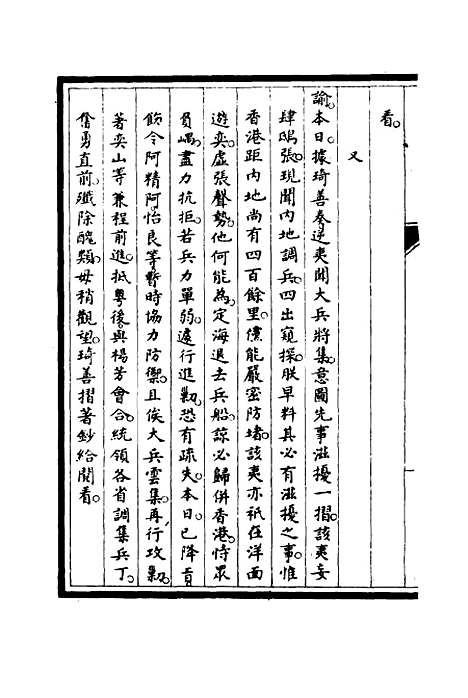 看。
又
諭。本日。據琦善奏。逆夷聞大兵將集。意圖先事滋擾一摺。該夷妄
肆鴟張。現聞内地調兵。四出窺探。朕早料其必有滋擾之事。惟
香港距内地尚有四百餘里。儻能嚴密防堵。該夷亦祇在洋面
遊奕。虛張聲勢。他何能為。定海退去兵船。諒必歸併香港。恃眾
負嵎。盡力抗拒。若兵力單弱。遽行進勦。恐有疎失。本日。已降旨
飭令阿精阿怡良等。暫時協力防禦。且俟大兵雲集。再行攻勦。
著奕山等兼程前進。抵粵後。與楊芳會合。統領各省調集兵丁。
奮勇直前。殲除醜類。毋稍觀望。琦善摺著鈔給閱看。